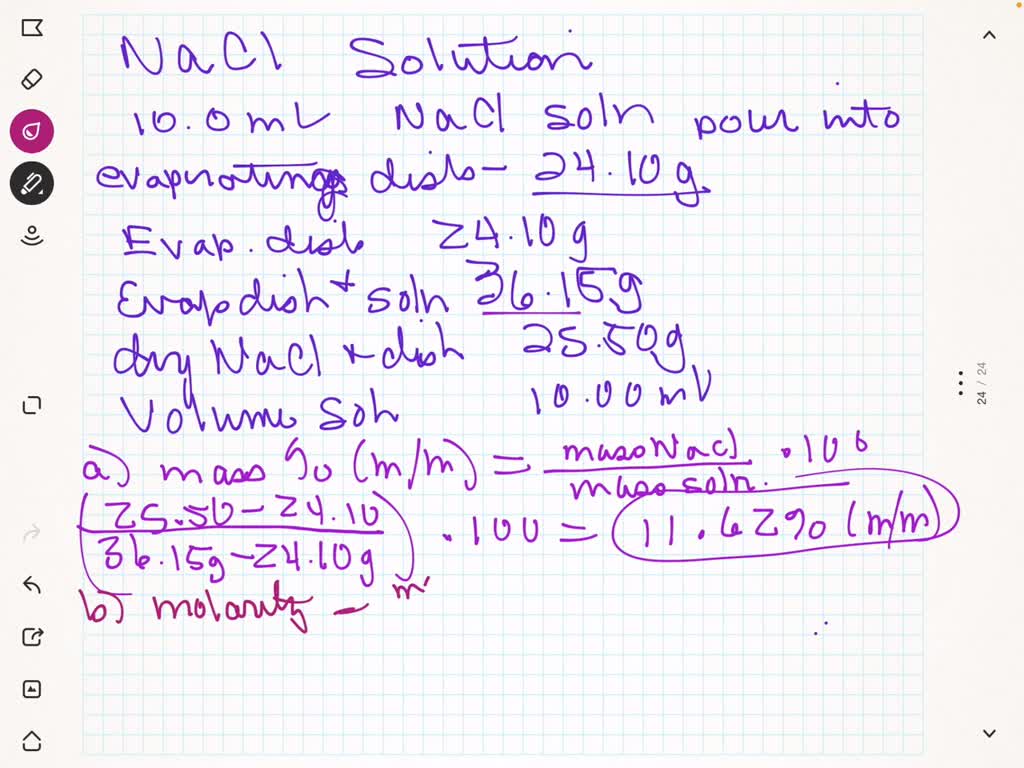 NaCl Solution
10.0 mL NaCl soln pour into
evaporating dish - 24.10 g.
Evap. dish 24.10 g
Evap dish + soln 36.15 g
dry NaCl + dish 25.50 g
Volume soln 10.00 ml
a) mass % (m/m) = mass NaCl / mass soln. · 100
(25.50 - 24.10 / 36.15g - 24.10g) · 100 = 11.62% (m/m)
b) molarity - m
24 / 24